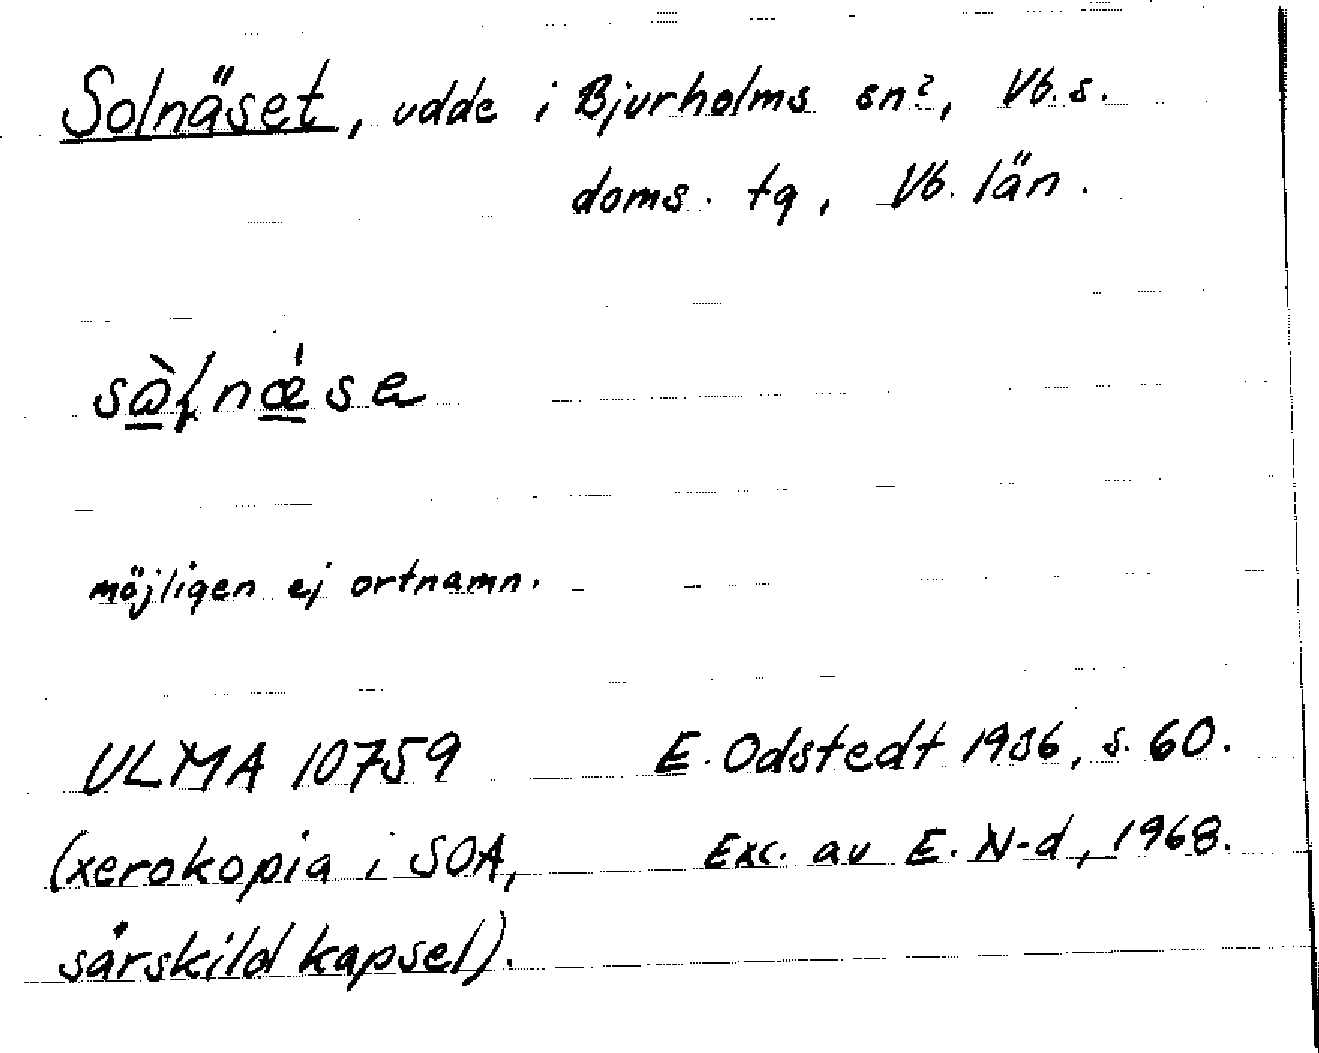 Solnäset, udde i Bjurholms sn?, Vb. s.
doms. tg, Vb. län.
möjligen ej ortnamn.
ULMA 10759 E. Odstedt 1936, s. 60.
(xerokopia i SOA, Exc. av E. N-d, 1968.
särskild kapsel).